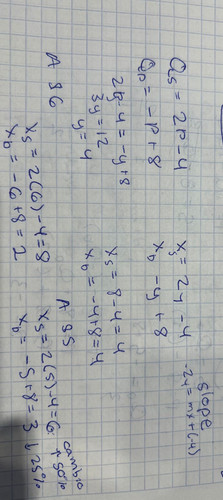 Qs = 2P - 4
Qp = -P + 8
xs = 2y - 4
xD -y + 8
slope
-2y = mx + (-4)
2y - 4 = -y + 8
3y = 12
y = 4
xs = 8 - 4 = 4
xD = -4 + 8 = 4
A $6
xs = 2(6) - 4 = 8
xD = -6 + 8 = 2
A $5
xs = 2(5) - 4 = 6
xD = -5 + 8 = 3
cambio
↑ 50%
↓ 25%